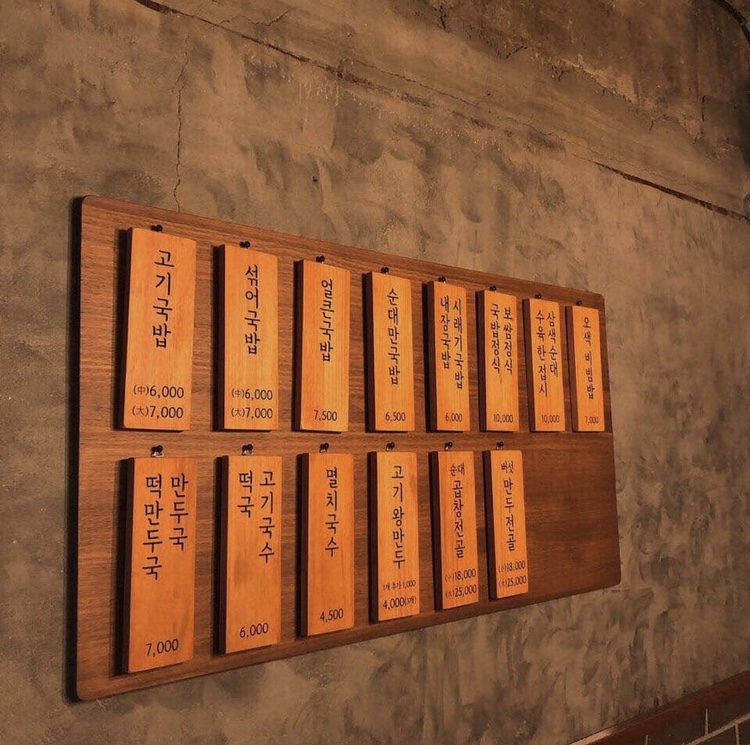 고기국밥
(中)6,000
(大)7,000
섞어국밥
(中)6,000
(大)7,000
얼큰국밥
7,500
순대만국밥
6,500
시래기국밥
내장국밥
6,000
보쌈정식
국밥정식
10,000
삼색순대
수육한접시
10,000
오색비빔밥
7,000
만두국
떡만두국
7,000
고기국수
떡국
6,000
멸치국수
4,500
고기왕만두
1개 추가 1,000
4,000(3개)
순대
곱창전골
(小)18,000
(大)25,000
버섯
만두전골
(小)18,000
(大)25,000